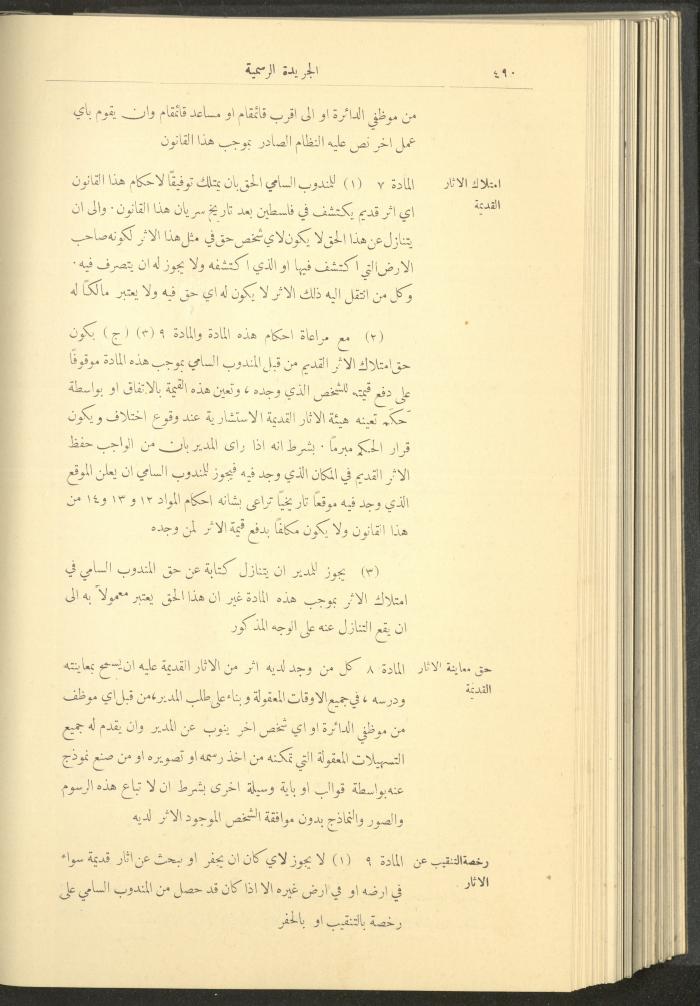 ٤٩٠
الجريدة الرسمية
من موظفي الدائرة او الى اقرب قائمقام او مساعد قائمقام وان يقوم باي
عمل اخر نص عليه النظام الصادر بموجب هذا القانون
امتلاك الاثار
القديمة
المادة ٧ (١) للمندوب السامي الحق بان يمتلك توفيقًا لاحكام هذا القانون
اي اثر قديم يكتشف في فلسطين بعد تاريخ سريان هذا القانون. والى ان
يتنازل عن هذا الحق لا يكون لاي شخص حق في مثل هذا الاثر لكونه صاحب
الارض التي اكتشف فيها او الذي اكتشفه ولا يجوز له ان يتصرف فيه.
وكل من انتقل اليه ذلك الاثر لا يكون له اي حق فيه ولا يعتبر مالكًا له
(٢) مع مراعاة احكام هذه المادة والمادة ٩ (٣) (ج) يكون
حق امتلاك الاثر القديم من قبل المندوب السامي بموجب هذه المادة موقوفًا
على دفع قيمته للشخص الذي وجده، وتعين هذه القيمة بالاتفاق او بواسطة
حَكَم تعينه هيئة الاثار القديمة الاستشارية عند وقوع اختلاف ويكون
قرار الحكم مبرمًا. بشرط انه اذا راى المدير بان من الواجب حفظ
الاثر القديم في المكان الذي وجد فيه فيجوز للمندوب السامي ان يعلن الموقع
الذي وجد فيه موقعًا تاريخيًا تراعى بشانه احكام المواد ١٢ و ١٣ و ١٤ من
هذا القانون ولا يكون مكلفًا بدفع قيمة الاثر لمن وجده
(٣) يجوز للمدير ان يتنازل كتابة عن حق المندوب السامي في
امتلاك الاثر بموجب هذه المادة غير ان هذا الحق يعتبر معمولاً به الى
ان يقع التنازل عنه على الوجه المذكور
حق معاينة الاثار
القديمة
المادة ٨ كل من وجد لديه اثر من الاثار القديمة عليه ان يسمح بمعاينته
ودرسه، في جميع الاوقات المعقولة وبناء على طلب المدير، من قبل اي موظف
من موظفي الدائرة او اي شخص اخر ينوب عن المدير وان يقدم له جميع
التسهيلات المعقولة التي تمكنه من اخذ رسمه او تصويره او من صنع نموذج
عنه بواسطة قوالب او باية وسيلة اخرى بشرط ان لا تباع هذه الرسوم
والصور والنماذج بدون موافقة الشخص الموجود الاثر لديه
رخصة التنقيب عن
الاثار
المادة ٩ (١) لا يجوز لاي كان ان يحفر او يبحث عن اثار قديمة سواء
في ارضه او في ارض غيره الا اذا كان قد حصل من المندوب السامي على
رخصة بالتنقيب او بالحفر